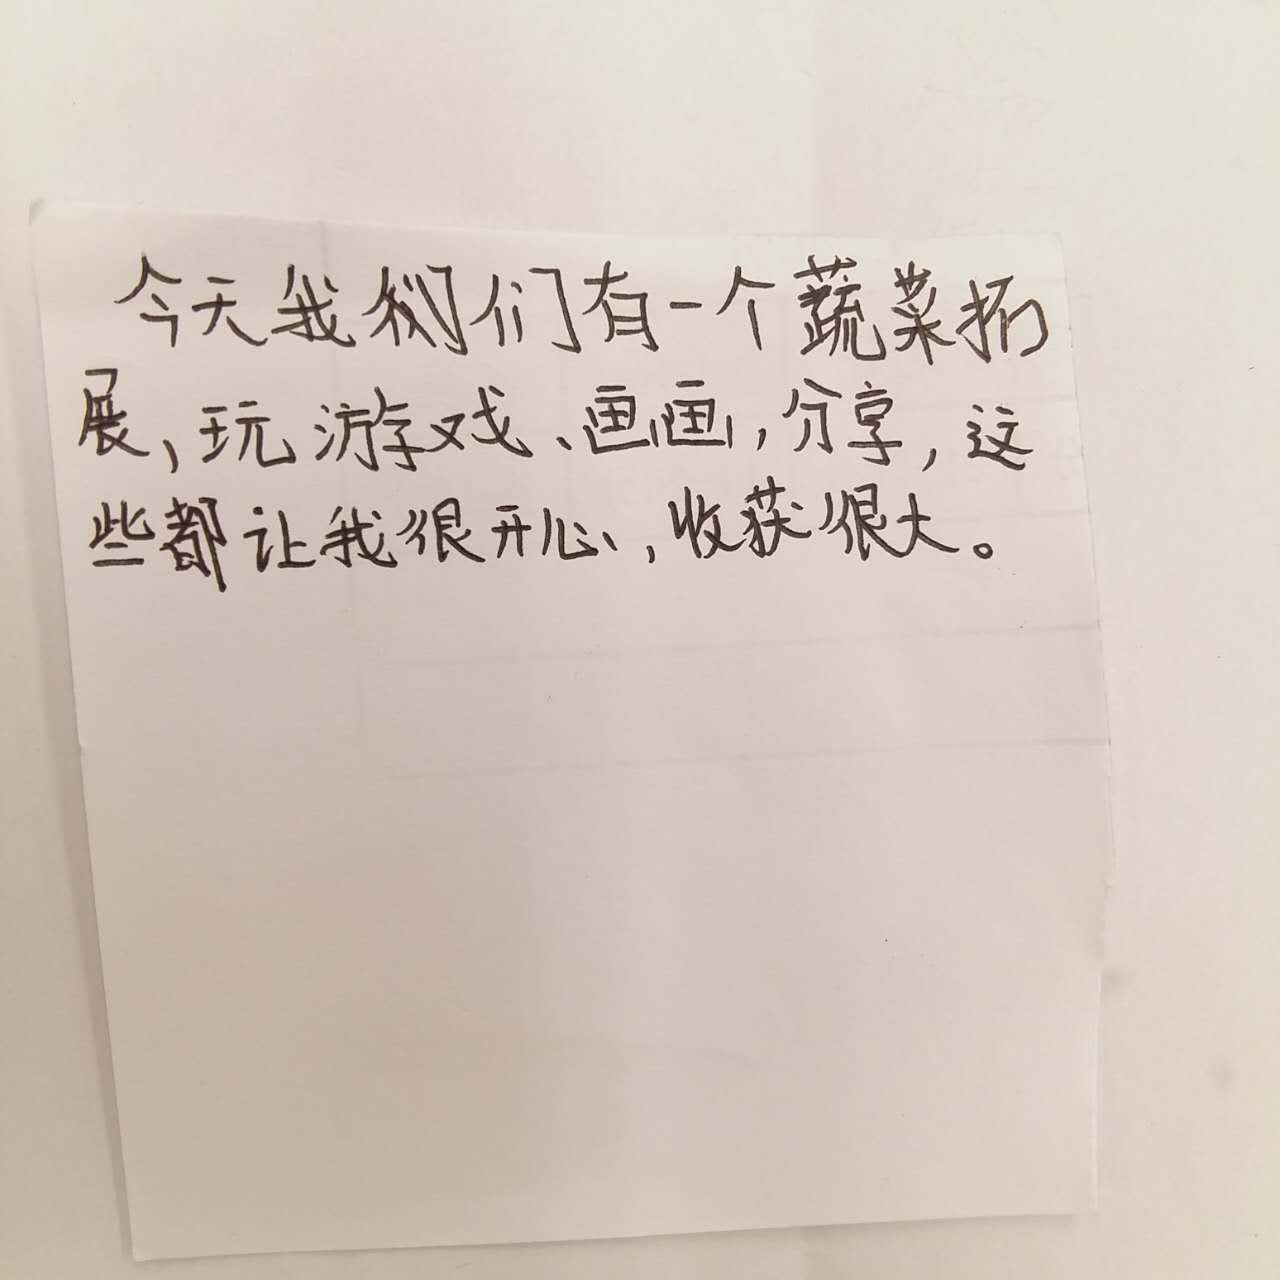 今天我们有一个蔬菜拓
展，玩游戏、画画，分享，这
些都让我很开心，收获很大。